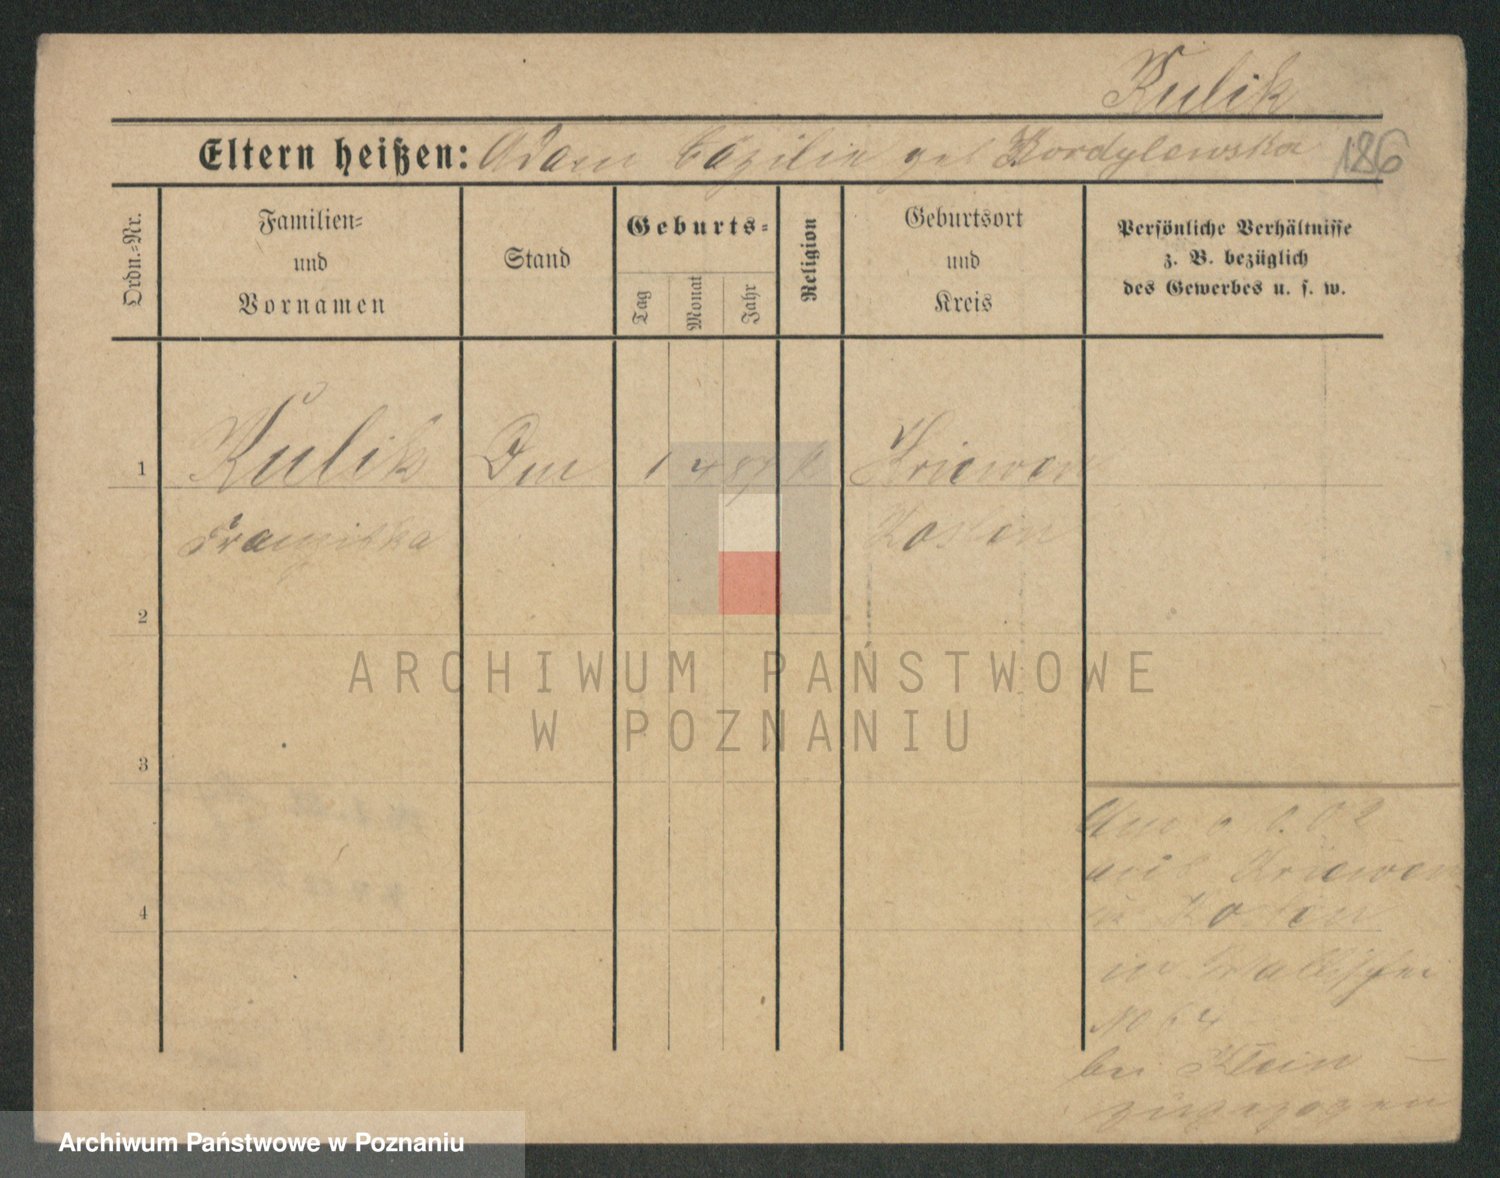 Kulik
Eltern heißen: Adam Cäzilia geb Kordylewska 186
Ordn.=Nr.
Familien=
und
Vornamen
Stand
Geburts=
Tag
Monat
Jahr
Religion
Geburtsort
und
Kreis
Persönliche Verhältnisse
z. B. bezüglich
des Gewerbes u. s. w.
1 Kulik 1 4 Kriewen
Franziska Kosten
2
ARCHIWUM PAŃSTWOWE
W POZNANIU
3
02
aus Kriewen
Kosten
4
in Wallischei
No 64
bei Klein
zugezogen
Archiwum Państwowe w Poznaniu